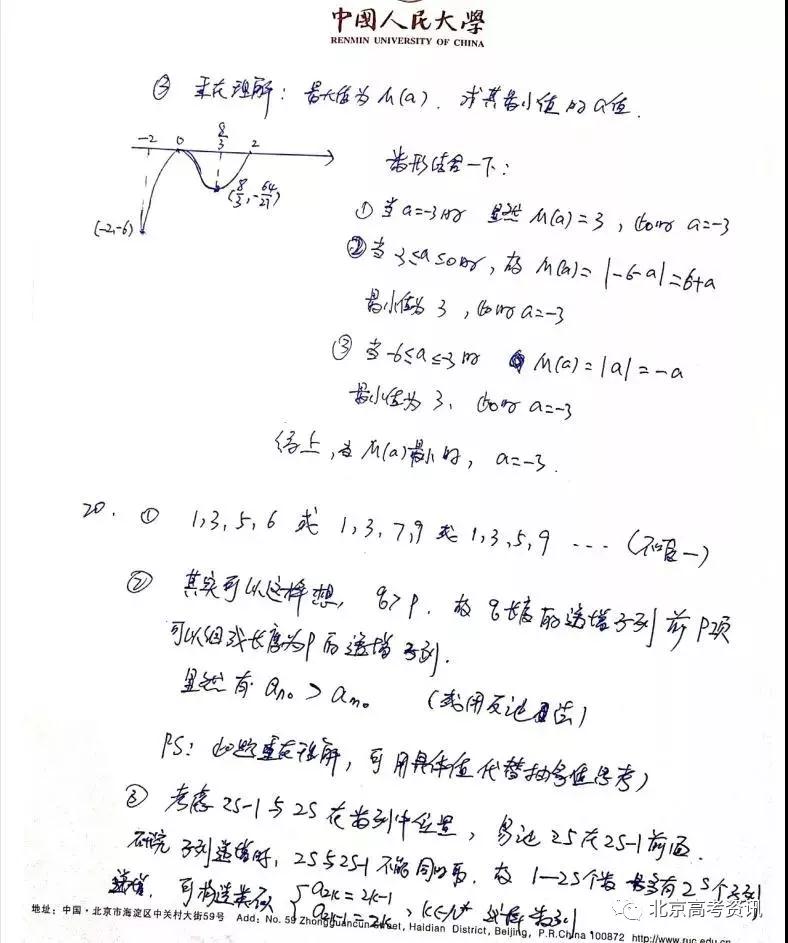 中国人民大學
RENMIN UNIVERSITY OF CHINA
③ 重在理解: 最大值为M(a). 求其最小值的a值.
-2 0 8/3 2
(8/3, -64/27)
(-2,-6)
数形结合一下:
① 当a=-3时 显然 M(a)=3, 此时 a=-3
② 当 3≤a≤0时, 故 M(a)=|-6-a|=6+a
最小值为 3, 此时a=-3
③ 当-6≤a≤-3时 M(a)=|a|=-a
最小值为 3. 此时 a=-3
综上, 当M(a)最小时, a=-3.
20. ① 1,3,5,6 或 1,3,7,9 或 1,3,5,9 ... (不唯一)
② 其实可以这样想, q>p. 故 q长度的递增子列前P项
可以组成长度为P的递增子列.
显然有 an₀ > am₀ (或用反证法)
PS: 此题重在理解, 可用具体值代替抽象值思考)
③ 考虑 2S-1与2S在数列中位置, 易证 2S在2S-1前面.
研究子列递增时, 2S与2S-1不能同时取. 故 1—2S个数 有2^S个子列
递增. 可构造数列 { a2k=2k-1
a2k-1=2k , k∈N*
地址：中国·北京市海淀区中关村大街59号 Add: No. 59 Zhongguancun Street, Haidian District, Beijing, P.R.China 100872 http://www.ruc.edu.cn
北京高考资讯